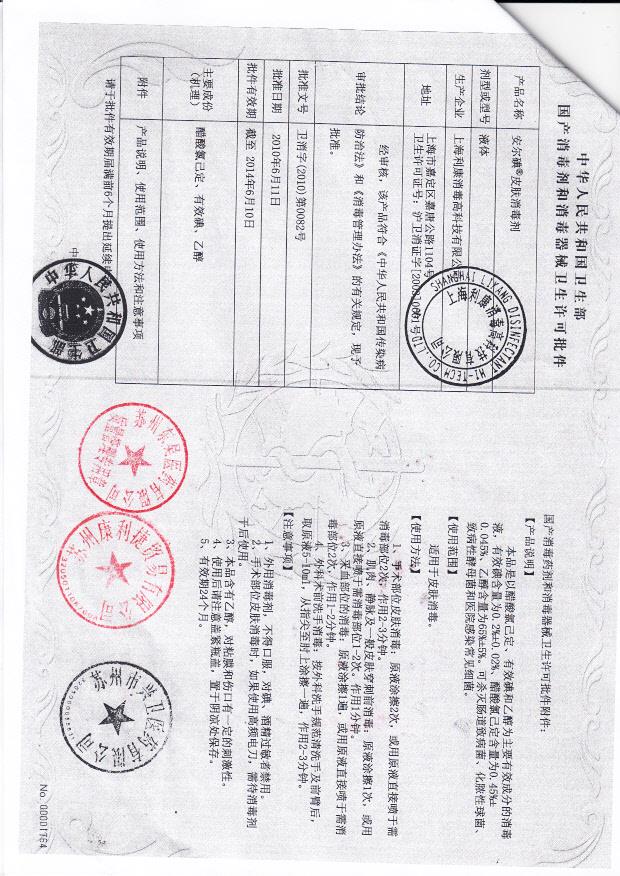 中华人民共和国卫生部
国产消毒剂和消毒器械卫生许可批件
产品名称 安尔碘®皮肤消毒剂
剂型或型号 液体
生产企业 上海利康消毒高科技有限公
地址 上海市嘉定区嘉唐公路1104号
卫生许可证号：沪卫消证字
审批结论 经审核，该产品符合《中华人民共和国传染病
防治法》和《消毒管理办法》的有关规定，现予
批准。
批准文号 卫消字(2010)第0082号
批准日期 2010年6月11日
批件有效期 截至 2014年6月10日
主要成份
(机理) 醋酸氯己定、有效碘、乙醇
附件 产品说明、使用范围、使用方法和注意事项
请于批件有效期届满前6个月提出延续
SHANGHAI LIKANG DISINFECTANT HI-TECH CO.,LTD
上海利康消毒高科技有限公司
中华人民共和国卫生部
苏州东昊医药有限公司
苏州康利捷贸易有限公司
苏州市兴卫医药有限公司
国产消毒药剂和消毒器械卫生许可批件附件：
【产品说明】
本品是以醋酸氯己定、有效碘和乙醇为主要有效成分的消毒
液，有效碘含量为0.2%±0.02%、醋酸氯己定含量为0.45%±
0.045%、乙醇含量为65%±5%。可杀灭肠道致病菌、化脓性球菌、
致病性酵母菌和医院感染常见细菌。
【使用范围】
适用于皮肤消毒。
【使用方法】
1、手术部位皮肤消毒：原液涂擦2次，或用原液直接喷于需
消毒部位2次，作用2-3分钟。
2、肌肉、静脉及一般皮肤穿刺前消毒：原液涂擦1次，或用
原液直接喷于需消毒部位1-2次。作用1分钟。
3、采血部位的消毒：原液涂擦1遍，或用原液直接喷于需消
毒部位2次，作用1-2分钟。
4、外科术前洗手消毒：按外科洗手规范清洗手及前臂后，
取原液5-10ml，从指尖至肘上涂擦一遍，作用2-3分钟。
【注意事项】
1、外用消毒剂，不得口服，对碘、酒精过敏者禁用。
2、手术部位皮肤消毒时，如果使用高频电刀，需待消毒剂
干后使用。
3、本品含有乙醇，对粘膜和伤口有一定的刺激性。
4、使用后请注意盖紧瓶盖，置于阴凉处保存。
5、有效期24个月。
No 00001764